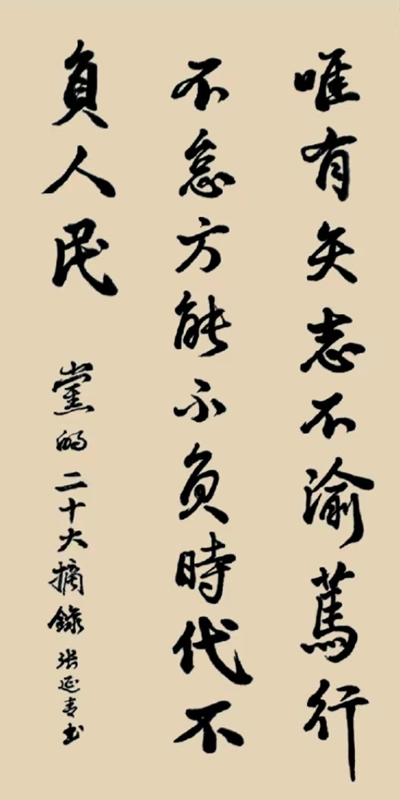 唯有矢志不渝篤行
不怠方能不負時代不
負人民
黨的二十大摘錄 張延春書